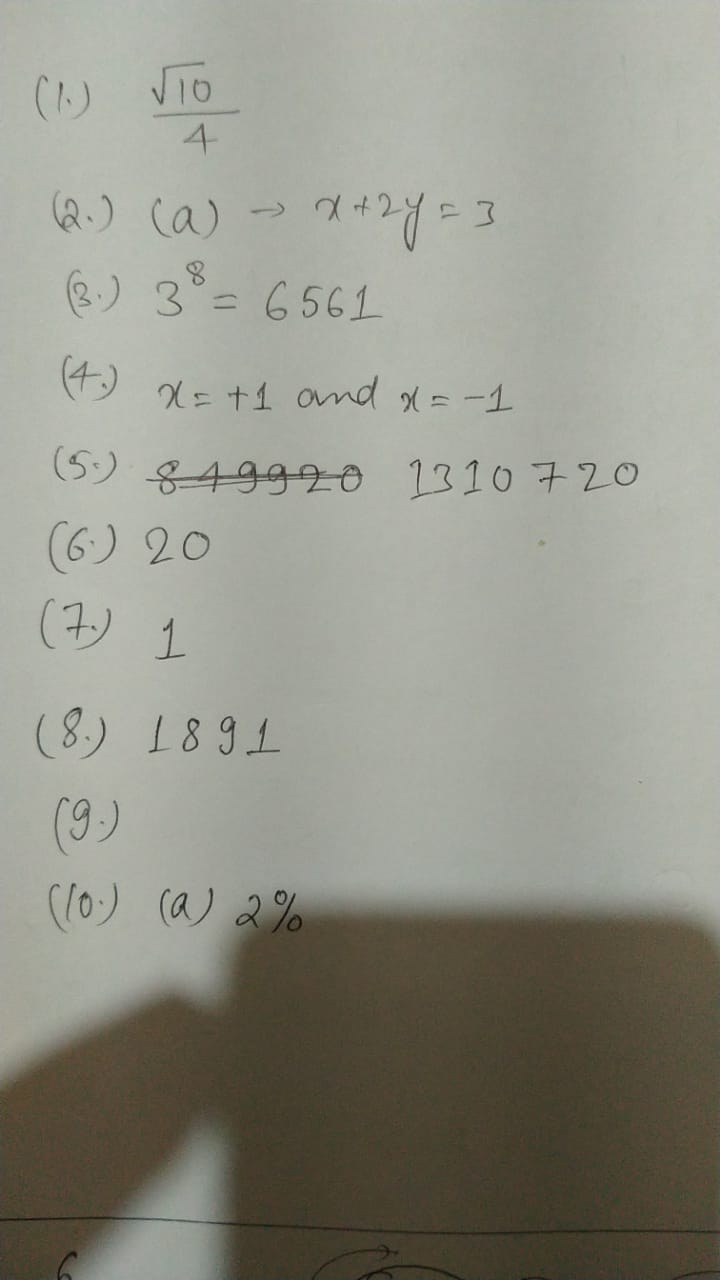 (1.) √10/4
(2.) (a) → x+2y=3
(3.) 3⁸ = 6561
(4.) x=+1 and x=-1
(5.) ~~849920~~ 1310720
(6.) 20
(7.) 1
(8.) 1891
(9.)
(10.) (a) 2%